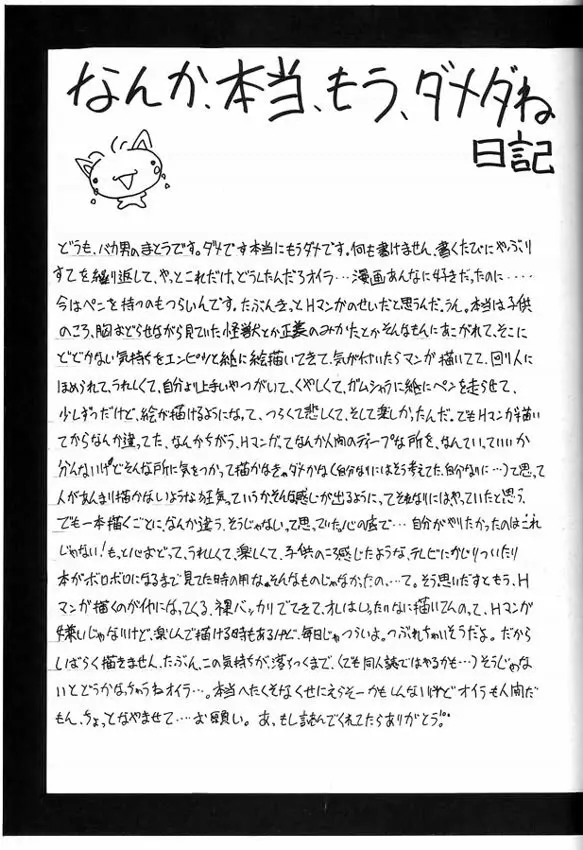 なんか、本当、もう、ダメダね
日記
どうも、バカ男のまとうです。ダメです本当にもうダメです。何も書けません、書くたびにやぶり
すてを繰り返して、やっとこれだけ、どうしたんだろオイラ…漫画あんなに好きだったのに‥‥
今はペンを持つのもつらいんです。たぶんきっとHマンガのせいだと思うんだ。うん。本当は子供
のころ、胸おどらせながら見ていた怪獣とか正義のみかたとかそんなもんにあこがれて、そこに
とどかない気持ちをエンピツと紙に絵描いてきて、気が付いたらマンガ描いてて、回り人に
ほめられて、うれしくて、自分より上手いやつがいて、くやしくて、ガムシャラに紙にペンを走らせて、
少しずつだけど、絵が描けるようになって、つらくて悲しくて、そして楽しかったんだ。でもHマンガを描い
てからなんか違ってた、なんかちがう、Hマンガってなんか人間のディープな所を、なんていっていいか
分んないけどそんな所に気をつかって描かなきゃダメかな(自分なりにはそう考えてた、自分なりに…)て思って
人があんまり描かないような狂気っていうか、そんな感じが出るようにってそれなりにはやっていたと思う、
でも一本描くごとに、なんか違う、そうじゃないって思っていた。心の底で…自分がやりたかったのはこれ
じゃない!もっと心おどって、うれしくて、楽しくて、子供のころ感じたような、テレビにかじりついたり
本がボロボロになるまで見てた時の用な。そんなものじゃなかったの…て。そう思いだすともう、H
マンガ描くのがイヤになってくる、裸バッカリでてきて、オレはいったいなに描いてんのって、Hマンガ
嫌いじゃないけど、楽しんで描ける時もあるけど、毎日じゃつらいよ。つぶれちゃいそうだよ。だから
しばらく描きません、たぶん、この気持ちが、落ちつくまで、(でも同人誌ではやるかも…)そうじゃな
いとどうかなっちゃうねオイラ…。本当へたくそなくせにえらそーかもしんないけどオイラも人間だ
もん、ちょっとなやませて…お願い。あ、もし読んでくれてたらありがとう。